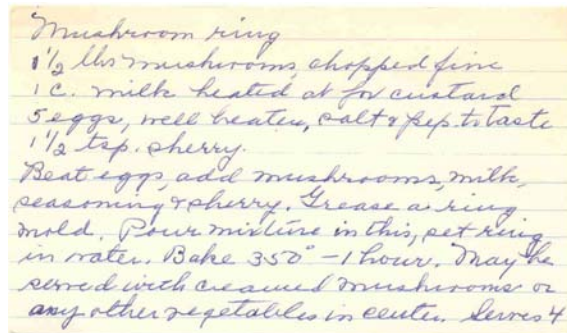 Mushroom ring
1 1/2 lbs mushrooms, chopped fine
1 c. milk heated as for custard
5 eggs, well beaten, salt & pep. to taste
1 1/2 tsp. sherry.
Beat eggs, add mushrooms, milk,
seasoning & sherry. Grease a ring
mold. Pour mixture in this, set ring
in water. Bake 350° – 1 hour. May be
served with creamed mushrooms or
any other vegetables in center. Serves 4